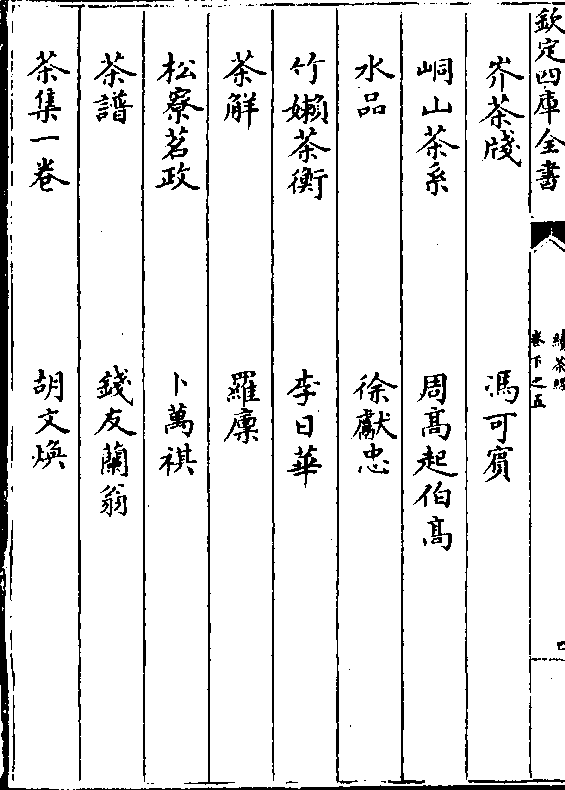 欽定四庫全書
續茶經
卷下之五
四
岕茶牋 馮可賓
峒山茶系 周高起伯高
水品 徐獻忠
竹嬾茶衡 李日華
茶解 羅廩
松寮茗政 卜萬祺
茶譜 錢友蘭翁
茶集一卷 胡文煥